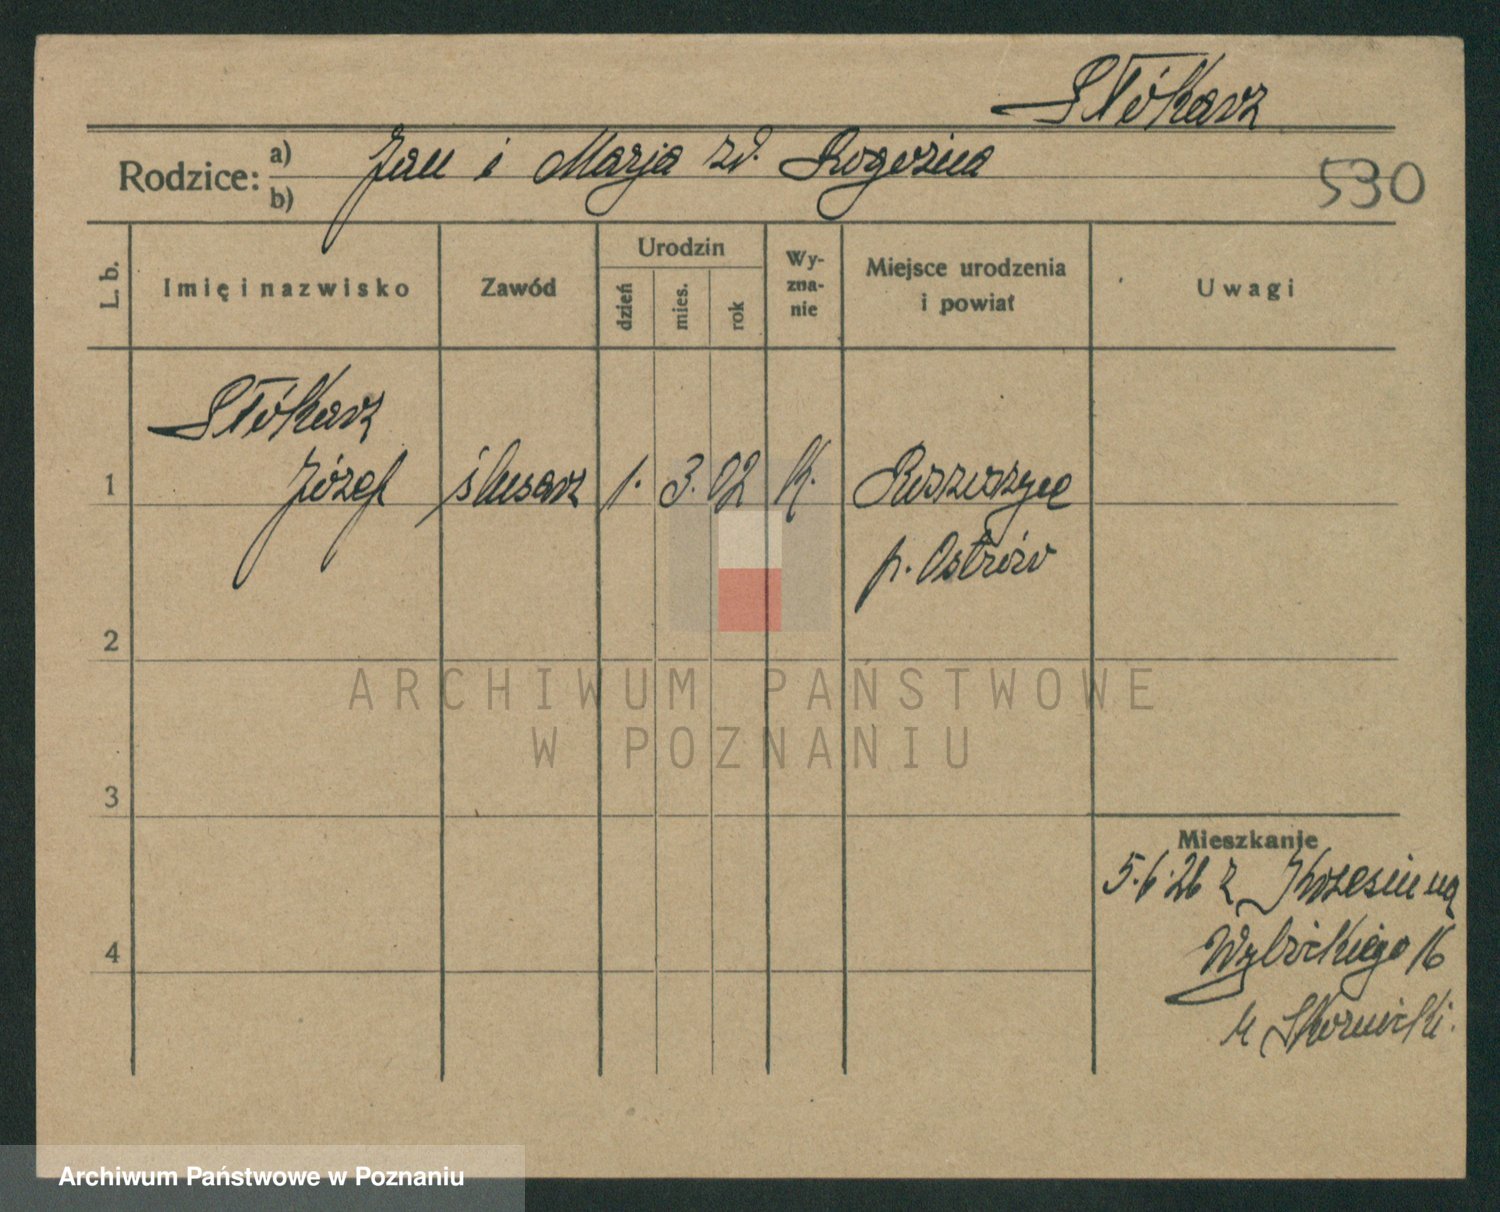 Słókarz
Rodzice: a) Jan i Marja zd. Rogozina
b)
530
L. b.
Imię i nazwisko
Zawód
Urodzin
dzień
mies.
rok
Wy-
zna-
nie
Miejsce urodzenia
i powiat
Uwagi
Słókarz
1 Józef ślusarz 1. 3. 02 k. Roszoszyce
p. Ostrów
2
3
4
ARCHIWUM PAŃSTWOWE
W POZNANIU
Mieszkanie
5.6.26 z na
Wybickiego 16
u Skornicki.
Archiwum Państwowe w Poznaniu